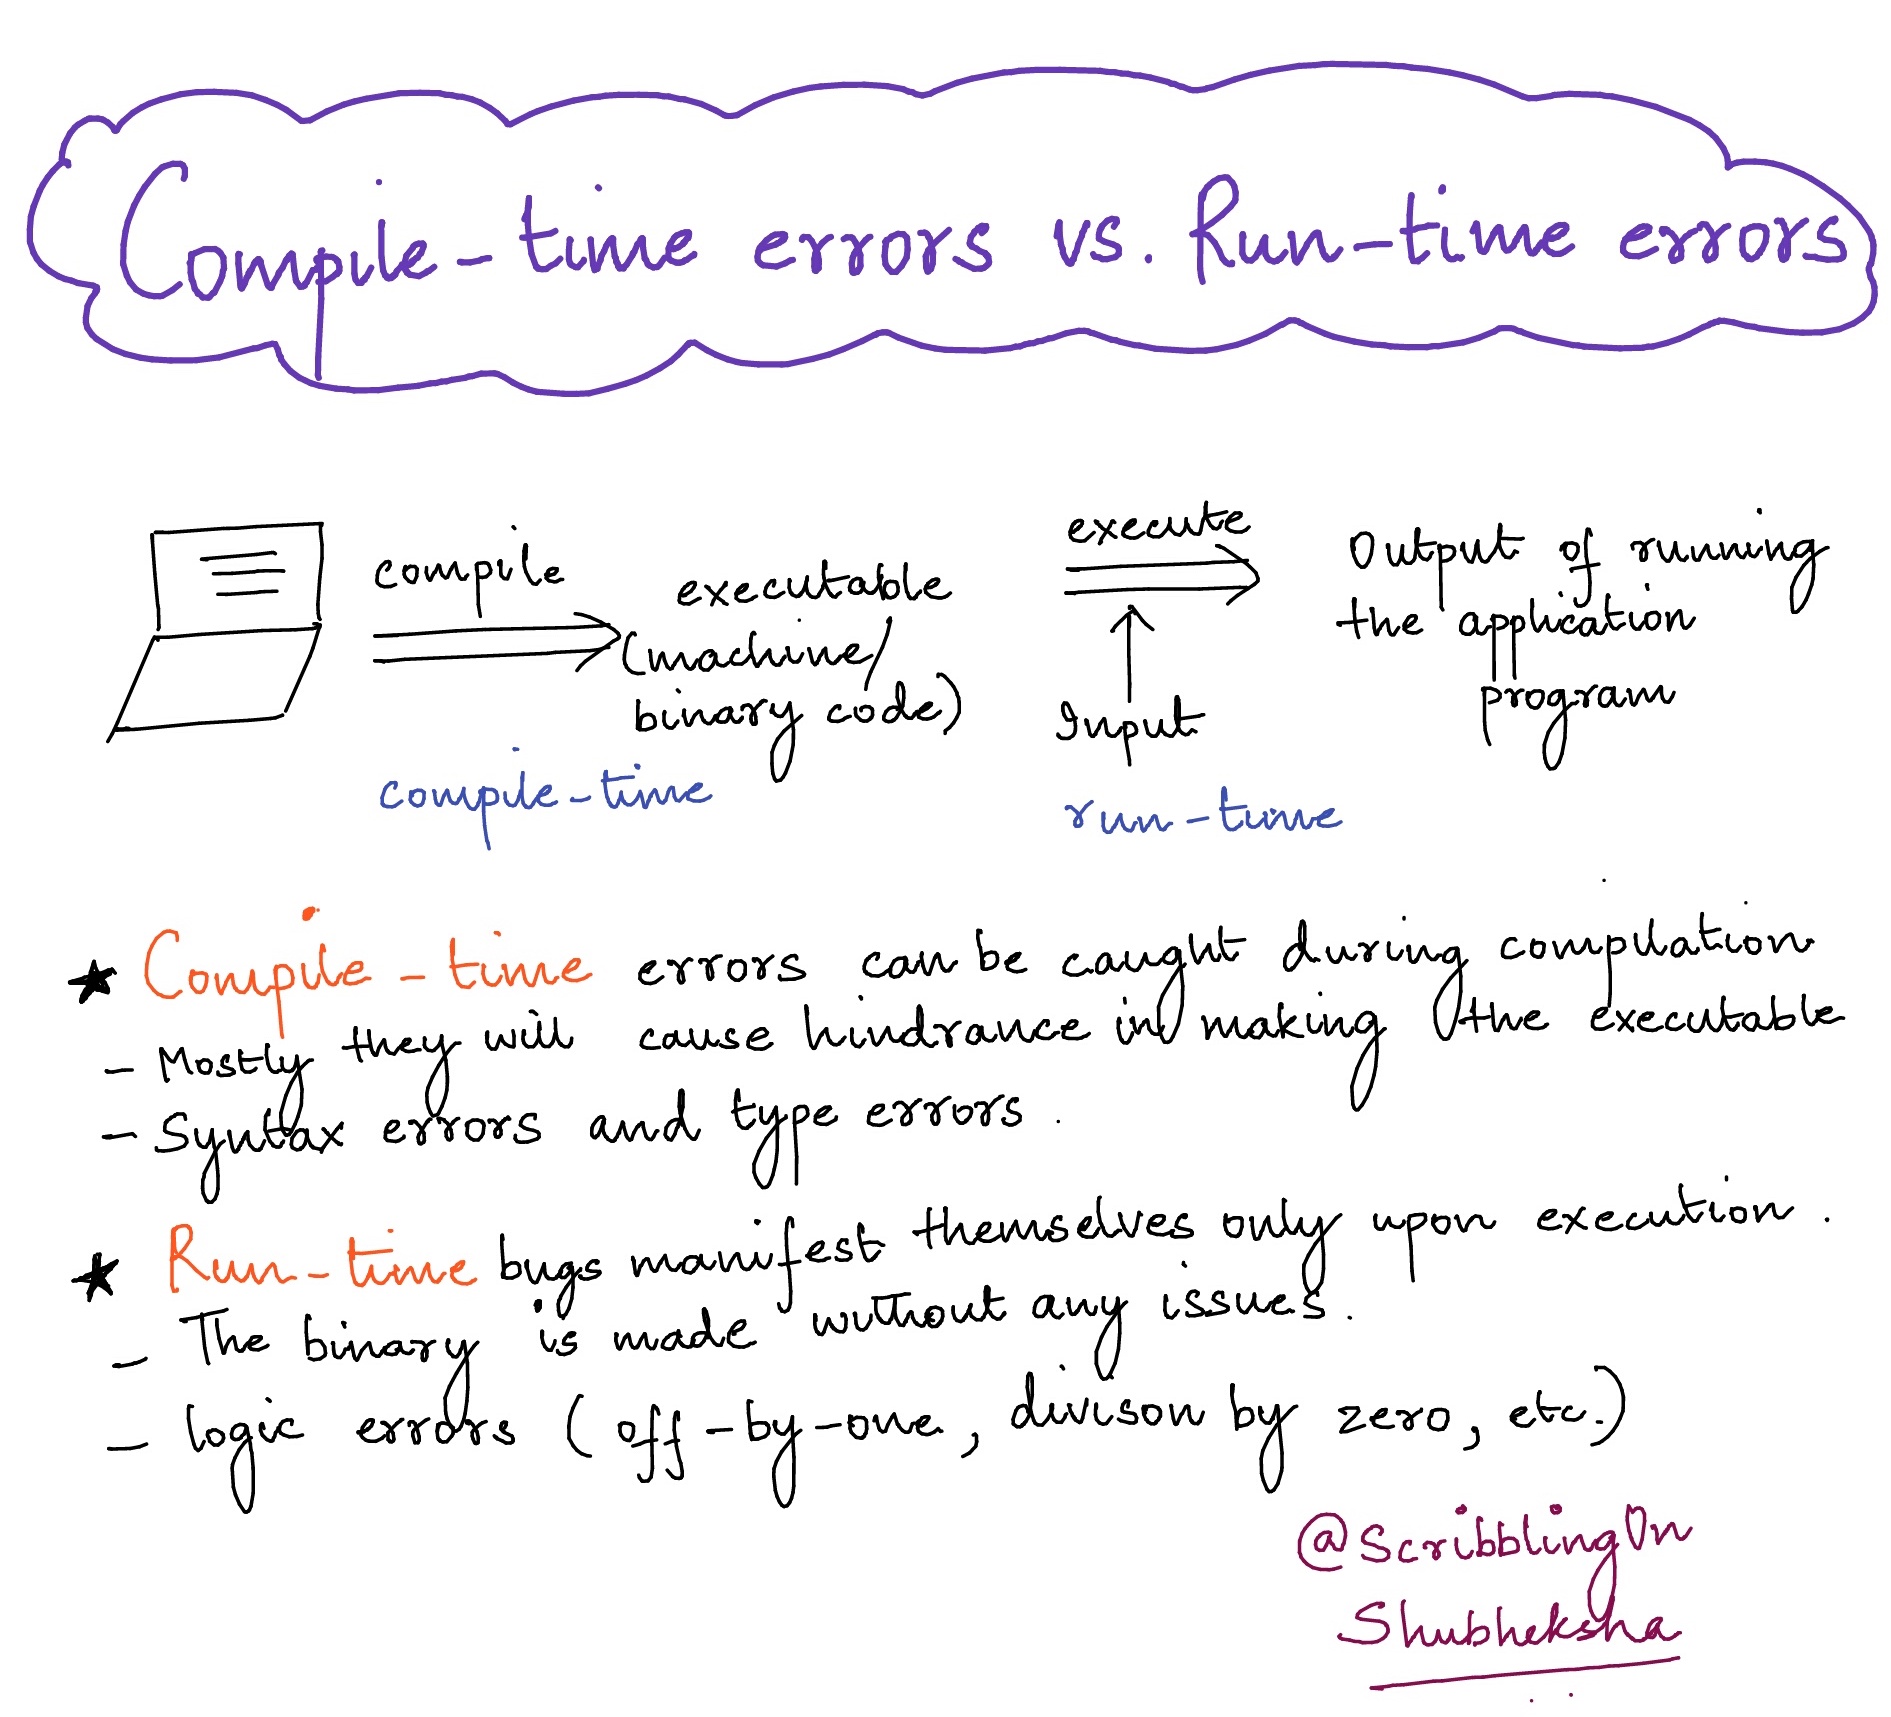 Compile-time errors vs. Run-time errors
compile
executable
(machine/
binary code)
compile-time
execute
Input
run-time
Output of running
the application
program
★ Compile-time errors can be caught during compilation
- Mostly they will cause hindrance in making the executable
- Syntax errors and type errors.
★ Run-time bugs manifest themselves only upon execution.
- The binary is made without any issues.
- logic errors (off-by-one, divison by zero, etc.)
@ScribblingOn
Shubheksha